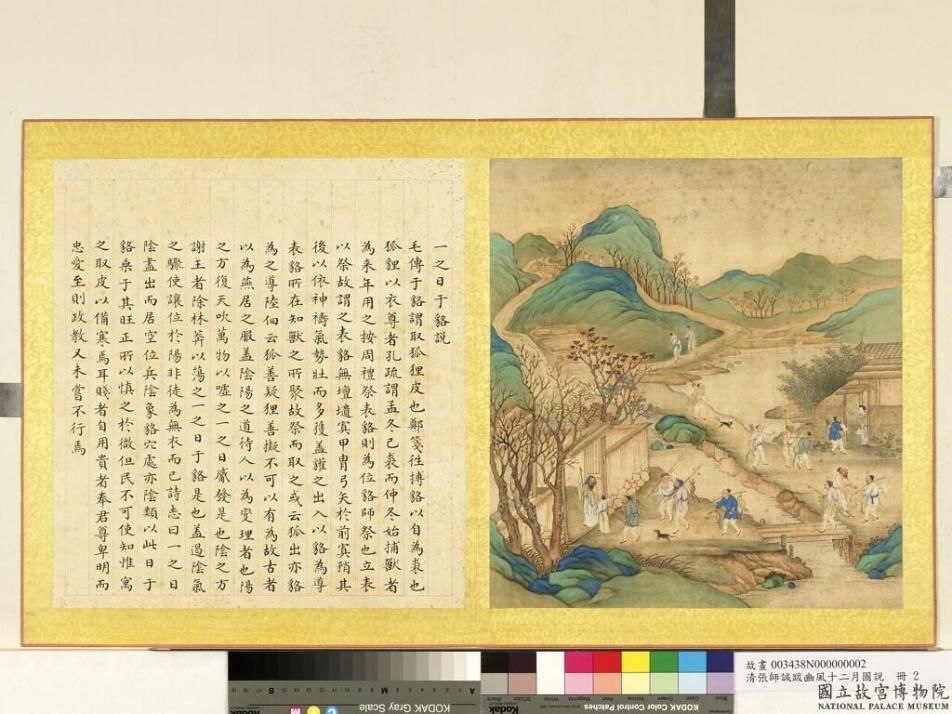 一之日于貉説
毛傳于貉謂取狐狸皮也鄭箋往搏貉以自為裘也
狐貍以衣尊者孔疏謂孟冬已裘而仲冬始捕獸者
為来年用之按周禮祭表貉則為位貉師祭也立表
以祭故謂之表貉無壇壝寘甲冑弓矢於前寘矟其
後以依神禱氣勢壯而多獲盖讙之出入以貉為導
表貉所在知獸之所聚故祭而取之或云狐出亦貉
為之導陸佃云狐善疑狸善擬不可以有為故古者
以為燕居之服盖陰陽之道待人以為燮理者也陽
之方復天吹萬物以噓之一之日觱發是也陰之方
謝王者除林莽以蕩之一之日于貉是也盖過陰氣
之驟使讓位於陽非徒為無衣而已詩志曰一之日
陰盡出而居空位兵陰象貉穴處亦陰類以此日于
貉乘于其旺正所以慎之於微但民不可使知惟寓
之取皮以備寒焉耳賤者自用貴者奉君尊卑明而
忠愛至則政教又未嘗不行焉
故畫 003438N000000002
清張師誠跋豳風十二月圖説 冊 2
國立故宮博物院
NATIONAL PALACE MUSEUM
KODAK Gray Scale
Kodak
KODAK Color Control Patches